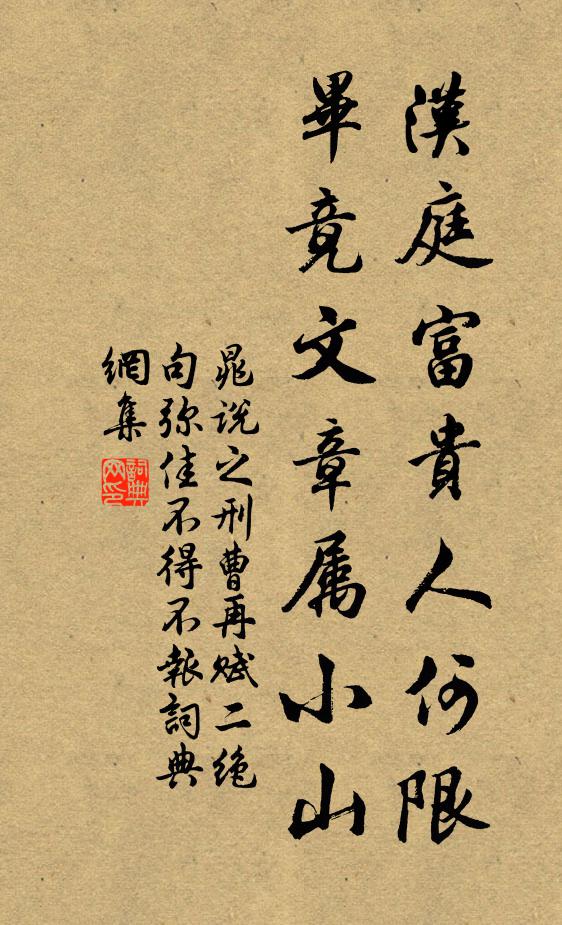 漢庭富貴人何限
畢竟文章属小山
晁說之刑曹再賦二绝
句弥佳不得不報詞典
網集
詞典
网印